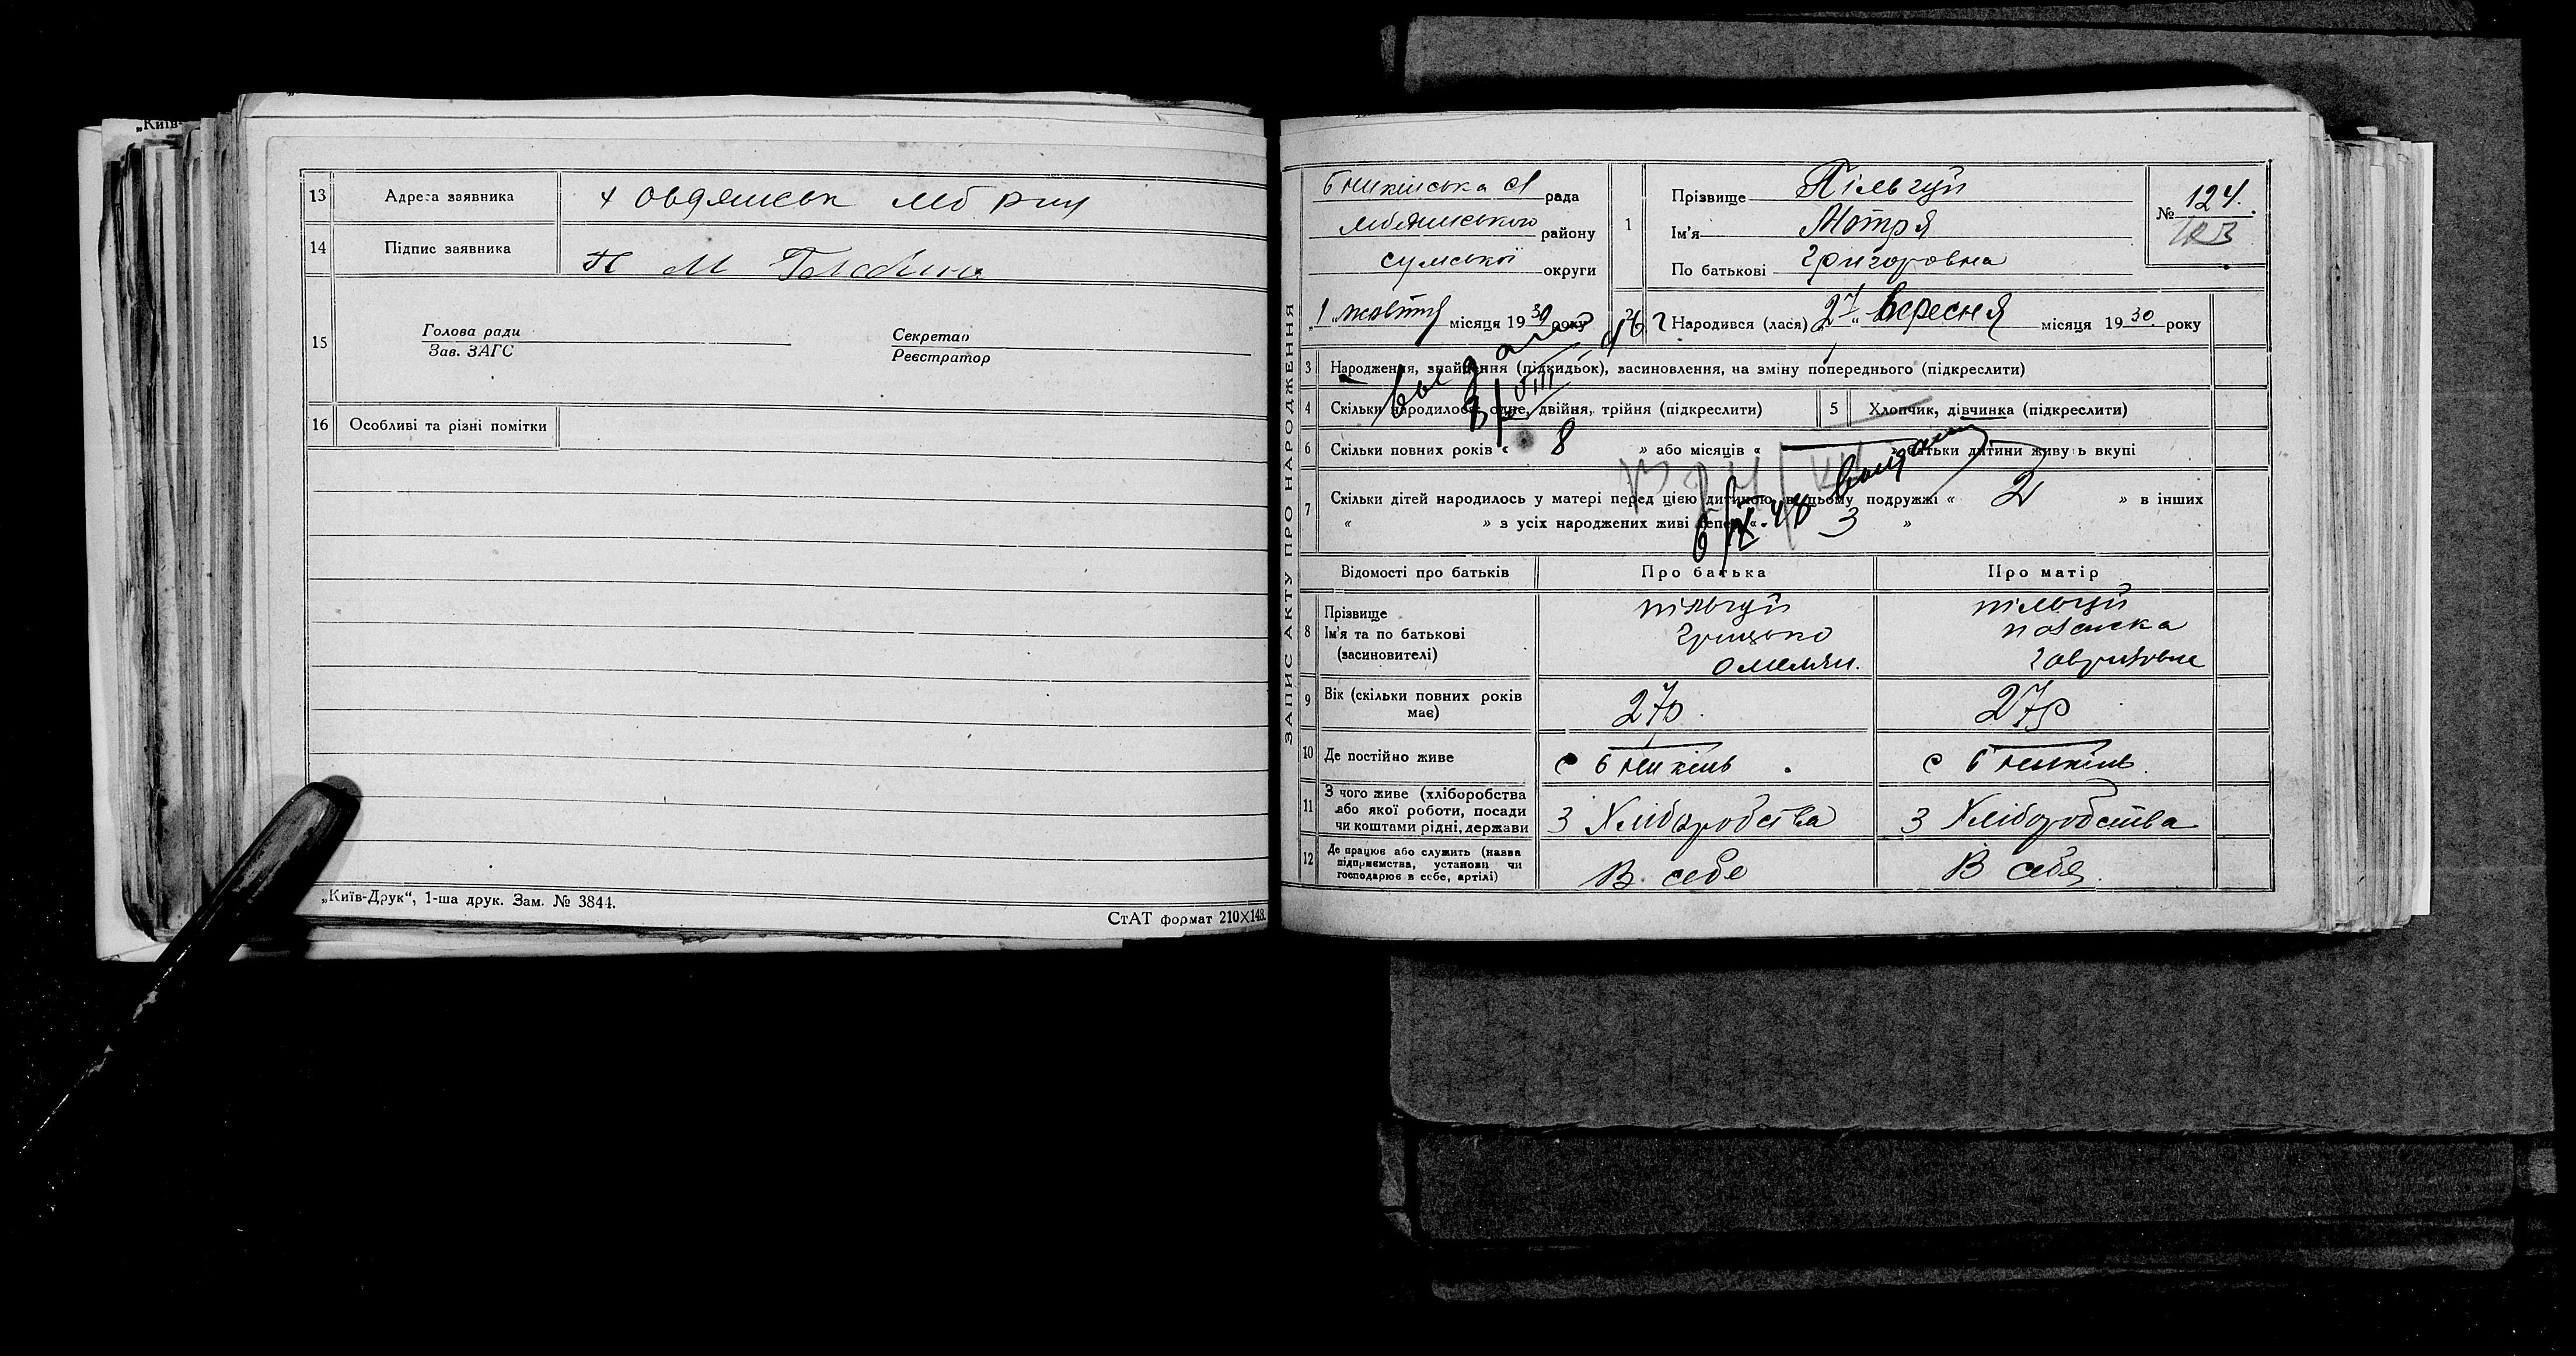 „Київ-
13 Адреса заявника х Овдянськ Леб рну
14 Підпис заявника
15 Голова ради Секретар
Зав. ЗАГС Реєстратор
16 Особливі та різні помітки
„Київ-Друк“, 1-ша друк. Зам. № 3844.
СтАТ формат 210×148.
ЗАПИС АКТУ ПРО НАРОДЖЕННЯ
рада
района району
Сумської округи
„1“ жовтня місяця 1930 року
1 Прізвище Пільгуй
Ім'я Мотря
По батькові Григоровна
№ 124.
2 Народився (лася) 27 „ вересня місяця 1930 року
3 Народження, знайдення (підкидьок), засиновлення, на зміну попереднього (підкреслити)
4 Скільки народилося: одне, двійня, трійня (підкреслити) 5 Хлопчик, дівчинка (підкреслити)
6 Скільки повних років « 8 » або місяців « » батьки дитини живуть вкупі
7 Скільки дітей народилось у матері перед цією дитиною в цьому подружжі « 2 » в інших
« » з усіх народжених живі тепер « 3 »
Відомості про батьків Про батька Про матір
8 Прізвище Пільгуй Пільгуй
Ім'я та по батькові Грицько
(засиновителі) Омелян.
9 Вік (скільки повних років має) 27р. 27р
10 Де постійно живе с с
11 З чого живе (хліборобства або якої роботи, посади чи коштами рідні, держави З Хліборобства З Хліборобства
12 Де працює або служить (назва підприємства, установи чи господарює в себе, артілі) В себе В себя.